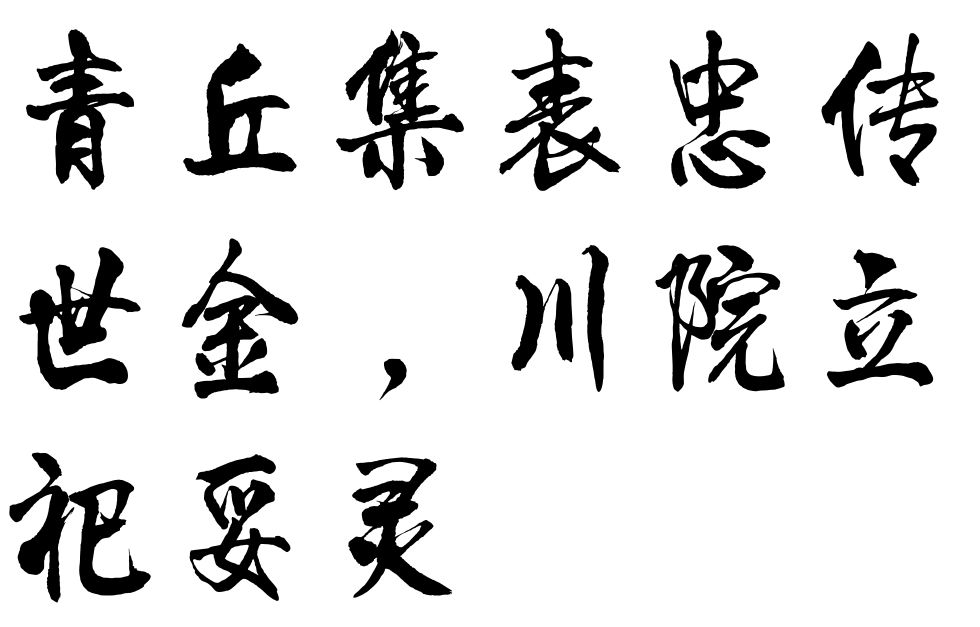 青丘集表忠传
世金，川院立
祀妥灵